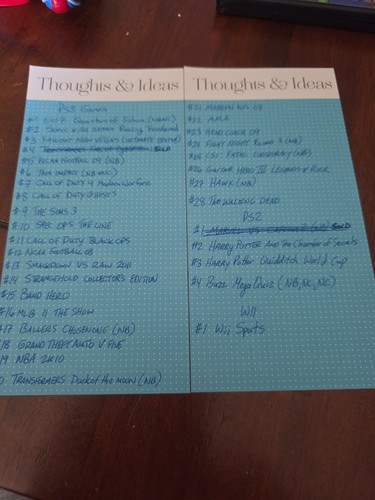 Thoughts & Ideas
PS3 Games
#1 007 Quantum of Solace (NBNC)
#2 Sonic & All Stars Racing Transformed
#3 Fallout New Vegas (Ultimate Edition)
#4 SOLD
#5 NCAA Football 09 (NB)
#6 (NB NC)
#7 Call of Duty 4 Modern Warfare
#8 Call of Duty Ghosts
#9 The Sims 3
#10 Spec Ops The Line
#11 Call of Duty Black Ops
#12 NCAA Football 08
#13 Smackdown vs Raw 2011
#14 Stranglehold Collector's Edition
#15 Band Hero
#16 MLB 11 The Show
#17 Ballers Chosen One (NB)
#18 Grand Theft Auto V Five
19 NBA 2K10
Transformers Dark of the Moon (NB)
Thoughts & Ideas
#21 Madden NFL 09
#22
#23 Head Coach 09
#24 Fight Night Round 3 (NB)
#25 CSI: Fatal Conspiracy (NB)
#26 Guitar Hero III Legends of Rock
#27 Hawx (NB)
#28 The Walking Dead
PS2
#1 Marvel vs Capcom 2 (NB) SOLD
#2 Harry Potter And the Chamber of Secrets
#3 Harry Potter Quidditch World Cup
#4 Buzz Mega Quiz (NB, NC, NC)
Wii
#1 Wii Sports